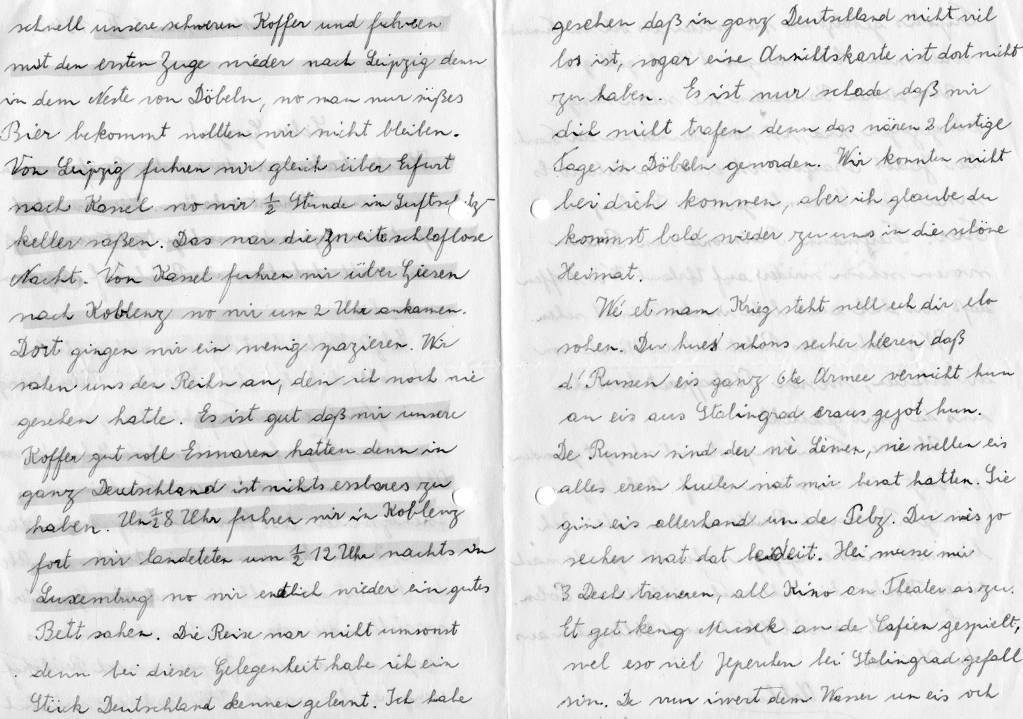 schnell unsere schweren Koffer und fuhren
mit den ersten Zuge wieder nach Leipzig denn
in dem Neste von Döbeln, wo man nur süßes
Bier bekommt wollten wir nicht bleiben.
Von Leipzig fuhren wir gleich über Erfurt
nach Kassel wo wir ½ Stunde im Luftschutz-
keller saßen. Das war die zweite schlaflose
Nacht. Von Kassel fuhren wir über Giesen
nach Koblenz wo wir um 2 Uhr ankamen.
Dort gingen wir ein wenig spazieren. Wir
sahen uns den Reihn an, den ich noch nie
gesehen hatte. Es ist gut daß wir unsere
Koffer gut voll Esswaren hatten denn in
ganz Deutschland ist nichts essbares zu
haben. Um ½ 8 Uhr fuhren wir in Koblenz
fort wir landeteten um ½ 12 Uhr nachts in
Luxemburg wo wir endlich wieder ein gutes
Bett sahen. Die Reise war nicht umsonst
denn bei dieser Gelegenheit habe ich ein
Stück Deutschland kennen gelernt. Ich habe
gesehen daß in ganz Deutschland nicht viel
los ist, sogar eine Ansichtskarte ist dort nicht
zu haben. Es ist nur schade daß wir
dich nicht trafen denn das wären 2 lustige
Tage in Döbeln geworden. Wir konnten nicht
bei dich kommen, aber ich glaube du
kommst bald wieder zu uns in die schöne
Heimat.
Wi et mam Krieg steht well ech dir elo
sohen. Du hues schons secher héeren daß
d'Russen eis ganz 6te Armee vernicht hun
an eis aus Stalingrad eraus gejot hun.
De Russen sind der wi Léiwen, sie wellen eis
alles erem huelen wat mir besat hatten. Sie
gin eis allerhand un de Pelz. Du wés jo
secher wat dat bedeit. Hei musse mir
3 Dech traueren, all Kino an Theater as zu.
Et get keng Musek an de Caféen gespielt,
wel eso viel Jepercher bei Stalingrad gefall
sin. De vun iwert dem Wasser un eis och